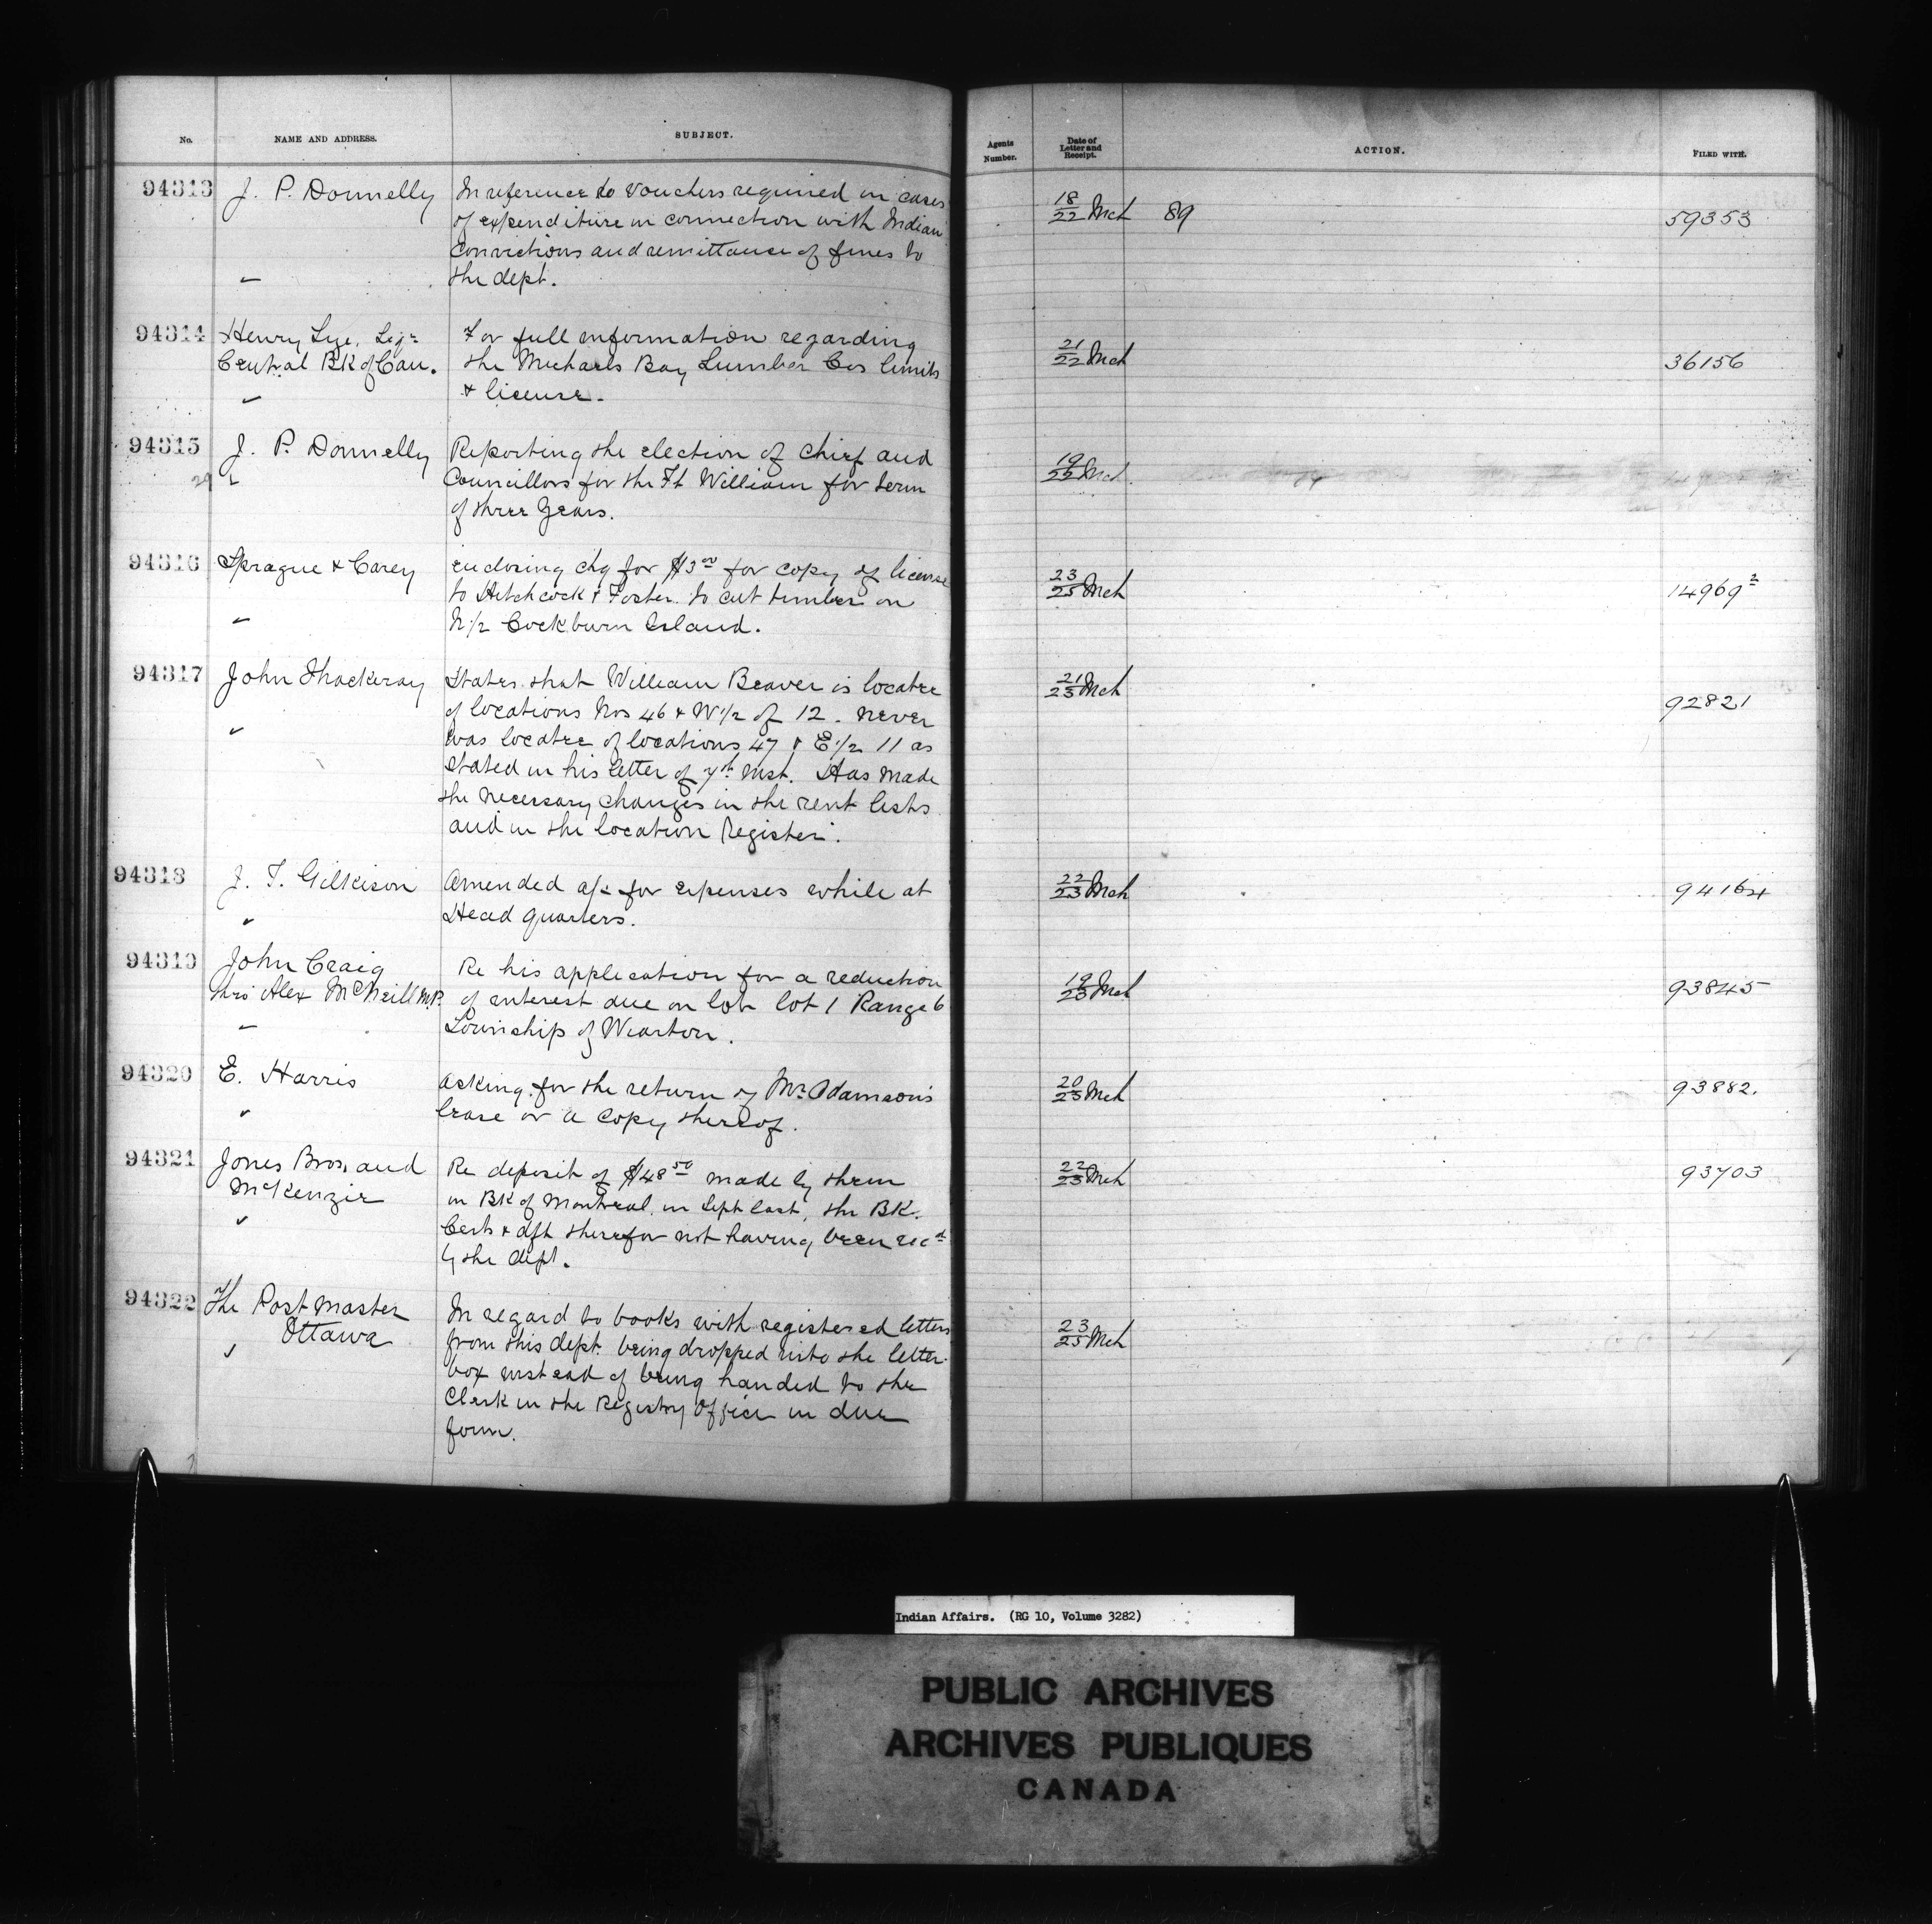 No. NAME AND ADDRESS. SUBJECT. Agents Number. Date of Letter and Receipt. ACTION. FILED WITH.
94313 J. P. Donnelly In reference to vouchers required in cases 18/22 Mch 89 59353
of expenditure in connection with Indian
convictions and remittance of fines to
the dept.
94314 Henry Lye, Liqr For full information regarding 21/22 Mch 36156
Central Bk of Can. the Michaels Bay Lumber Cos limits
& license.
94315 J. P. Donnelly Reporting the election of Chief and 19/22 Mch
Councillors for the Ft William for term
of three years.
94316 Sprague & Carey enclosing chq for $3.00 for copy of license 23/25 Mch 14969²
to Hitchcock & Foster to cut timber on
N 1/2 Cockburn Island.
94317 John Thackeray States that William Beaver is locatee 21/23 Mch 92821
of locations Nos 46 & W 1/2 of 12. never
was locatee of locations 47 & E 1/2 11 as
stated in his letter of 7th inst. Has made
the necessary changes in the rent lists
and in the location Register.
94318 J. T. Gilkison Amended a/c for expenses while at 22/23 Mch 94164
Head quarters.
94319 John Craig Re his application for a reduction 19/23 Mch 93845
thro' Alex McNeill M.P. of interest due on lot 1 Range 6
Township of Wiarton.
94320 E. Harris asking for the return of Mr Adamson's 20/23 Mch 93882.
lease or a copy thereof.
94321 Jones Bros. and Re deposit of $48.50 made by them 22/23 Mch 93703
McKenzie in Bk of Montreal in Sept last, the BK.
Certs & dft therefor not having been recd
by the dept.
94322 The Post Master In regard to books with registered letters 23/25 Mch
Ottawa from this dept. being dropped into the letter
box instead of being handed to the
Clerk in the Registry Office in due
form.
Indian Affairs. (RG 10, Volume 3282)
PUBLIC ARCHIVES
ARCHIVES PUBLIQUES
CANADA